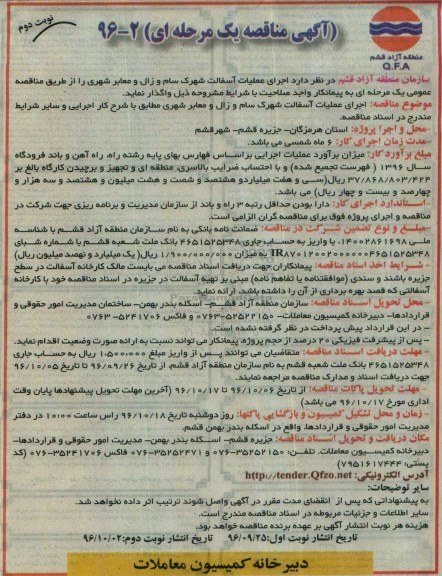 نوبت دوم
(آگهی مناقصه یک مرحله ای) ۲-۹۶
منطقه آزاد قشم
Q.F.A
سازمان منطقه آزاد قشم در نظر دارد اجرای عملیات آسفالت شهرک سام و زال و معابر شهری را از طریق مناقصه
عمومی یک مرحله ای به پیمانکار واجد صلاحیت با شرایط مشروحه ذیل واگذار نماید.
موضوع مناقصه: اجرای عملیات آسفالت شهرک سام و زال و معابر شهری مطابق با شرح کار اجرایی و سایر شرایط
مندرج در اسناد مناقصه.
-محل و اجرا پروژه: استان هرمزگان- جزیره قشم- شهرقشم
-مدت زمان اجرای کار: ۶ ماه شمسی می باشد.
مبلغ برآورد کار: میزان برآورد عملیات اجرایی براساس فهارس بهای پایه رشته راه، راه آهن و باند فرودگاه
سال ۱۳۹۶ ( فهرست تجمیع شده) و با احتساب ضرایب بالاسری، منطقه ای و تجهیز و برچیدن کارگاه بالغ بر
۳۷/۸۶۸/۸۰۳/۴۲۴ ریال(سی و هفت میلیاردو هشتصد و شصت و هشت میلیون و هشتصد و سه هزار و
چهارصد و بیست و چهار ریال) می باشد.
-استاندارد اجرای کار: دارا بودن حداقل رتبه ۳ راه و باند از سازمان مدیریت و برنامه ریزی جهت شرکت در
مناقصه و اجرای پروژه فوق برای مناقصه گران الزامی است.
-مبلغ و نوع تضمین شرکت در مناقصه: ضمانت نامه بانکی به نام سازمان منطقه آزاد قشم با شناسه
ملی ۱۴۰۰۲۸۶۱۶۹۸، یا واریز به حساب جاری ۴۶۵۱۵۲۵۳۴۸ بانک ملت شعبه قشم با شماره شبای
به میزان ۱/۹۰۰/۰۰۰/۰۰۰ ریال( یک میلیارد و نهصد میلیون ریال)
- شرایط اخذ اسناد مناقصه: پیمانکاران جهت دریافت اسناد مناقصه می بایست مالک کارخانه آسفالت در سطح
جزیره باشند و سندی (موافقتنامه یا تفاهم نامه) مبنی بر تهیه آسفالت در جزیره در اسناد مناقصه خود با کارخانه
آسفالتی که قصد بهره برداری از آن را داشته باشد، ارائه نماید.
- محل تحویل اسناد مناقصه: سازمان منطقه آزاد قشم- اسکله بندر بهمن- ساختمان مدیریت امور حقوقی و
قراردادها- دبیرخانه کمیسیون معاملات- ۵۲۵۲۱۵۰-۰۷۶۳ و فاکس ۵۲۴۱۷۰۶-۰۷۶۳
- در این قرارداد پیش پرداخت در نظر گرفته نشده است.
- پس از پیشرفت فیزیکی ۲۰ درصد از حجم پروژه، پیمانکار می تواند نسبت به ارائه صورت وضعیت اقدام نماید.
- مهلت دریافت اسناد مناقصه: متقاضیان می توانند پس از واریز مبلغ ۱،۵۰۰،۰۰۰ ریال به حساب جاری
۴۶۵۱۵۲۵۳۴۸ بانک ملت شعبه قشم به نام سازمان منطقه آزاد قشم. از تاریخ ۹۶/۰۹/۲۶ تا تاریخ ۹۶/۱۰/۰۵
جهت دریافت اسناد و مدارک مناقصه مراجعه نمایند.
- مهلت تحویل پاکات مناقصه: از تاریخ ۹۶/۱۰/۰۶ تا ۹۶/۱۰/۱۷ (آخرین مهلت تحویل پیشنهادها پایان وقت
اداری مورخ ۹۶/۱۰/۱۷ می باشد)
- زمان و محل تشکیل کمیسیون و بازگشایی پاکتها: روز دوشنبه تاریخ ۹۶/۱۰/۱۸ راس ساعت ۱۰:۰۰ در دفتر
مدیریت امور حقوقی و قراردادها، واقع در اسکله بندر بهمن قشم.
مکان دریافت و تحویل اسناد مناقصه: جزیره قشم- اسکله بندر بهمن- مدیریت امور حقوقی و قراردادها-
دبیرخانه کمیسیون معاملات. تلفن: ۳۵۲۵۲۱۵۰-۰۷۶ و ۳۵۲۵۲۴۷۱-۰۷۶ فاکس ۳۵۲۴۱۷۰۶-۰۷۶ (کد
پستی: ۷۹۵۱۶۱۷۴۴۴)
آدرس الکترونیکی: http://tender.Qfzo.net
سایر توضیحات:
به پیشنهاداتی که پس از انقضای مدت مقرر در آگهی واصل شوند ترتیب اثر داده نخواهد شد.
سایر اطلاعات و جزئیات مربوطه در اسناد مناقصه مندرج است.
هزینه هر نوبت انتشار آگهی بر عهده برنده مناقصه خواهد بود.
تاریخ انتشار نوبت اول: ۹۶/۰۹/۲۵ تاریخ انتشار نوبت دوم: ۹۶/۱۰/۰۲
دبیرخانه کمیسیون معاملات